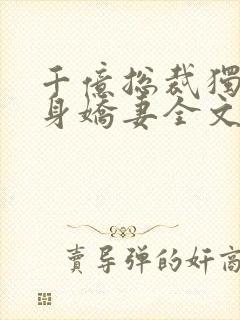 千億總裁獨
身嬌妻全文
賣导弹的奸商